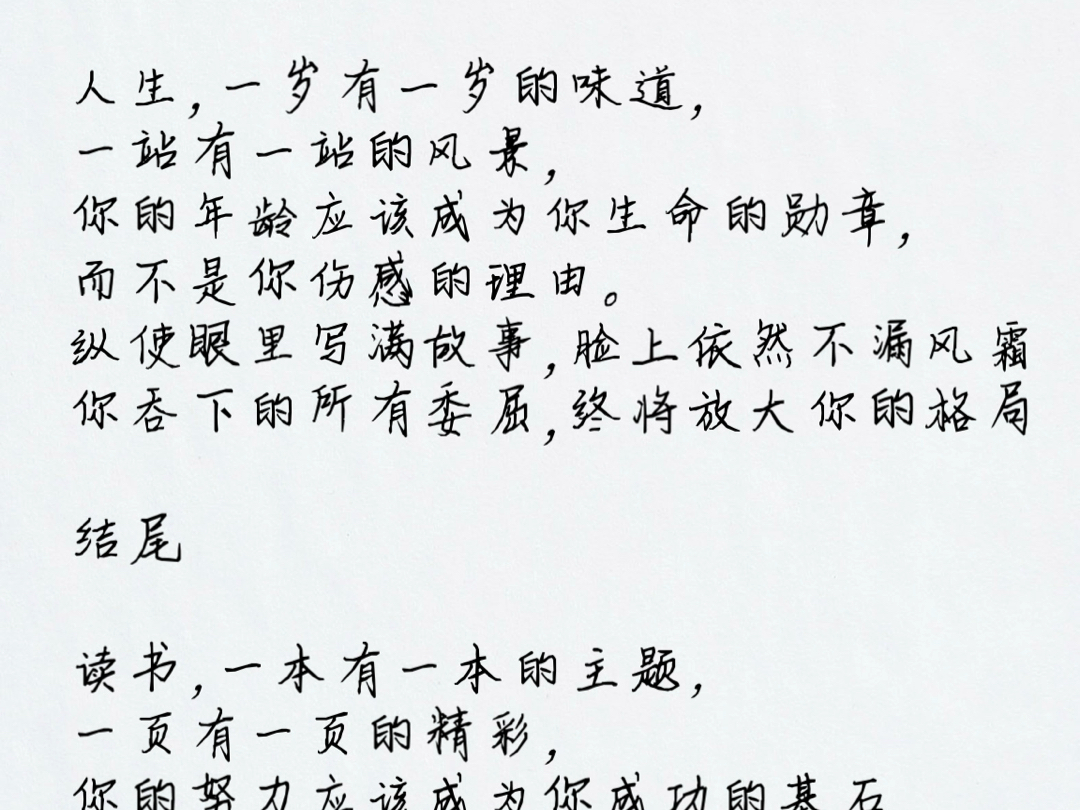 人生,一岁有一岁的味道,
一站有一站的风景,
你的年龄应该成为你生命的勋章,
而不是你伤感的理由。
纵使眼里写满故事,脸上依然不漏风霜
你吞下的所有委屈,终将放大你的格局
结尾
读书,一本有一本的主题,
一页有一页的精彩,
你的努力应该成为你成功的基石